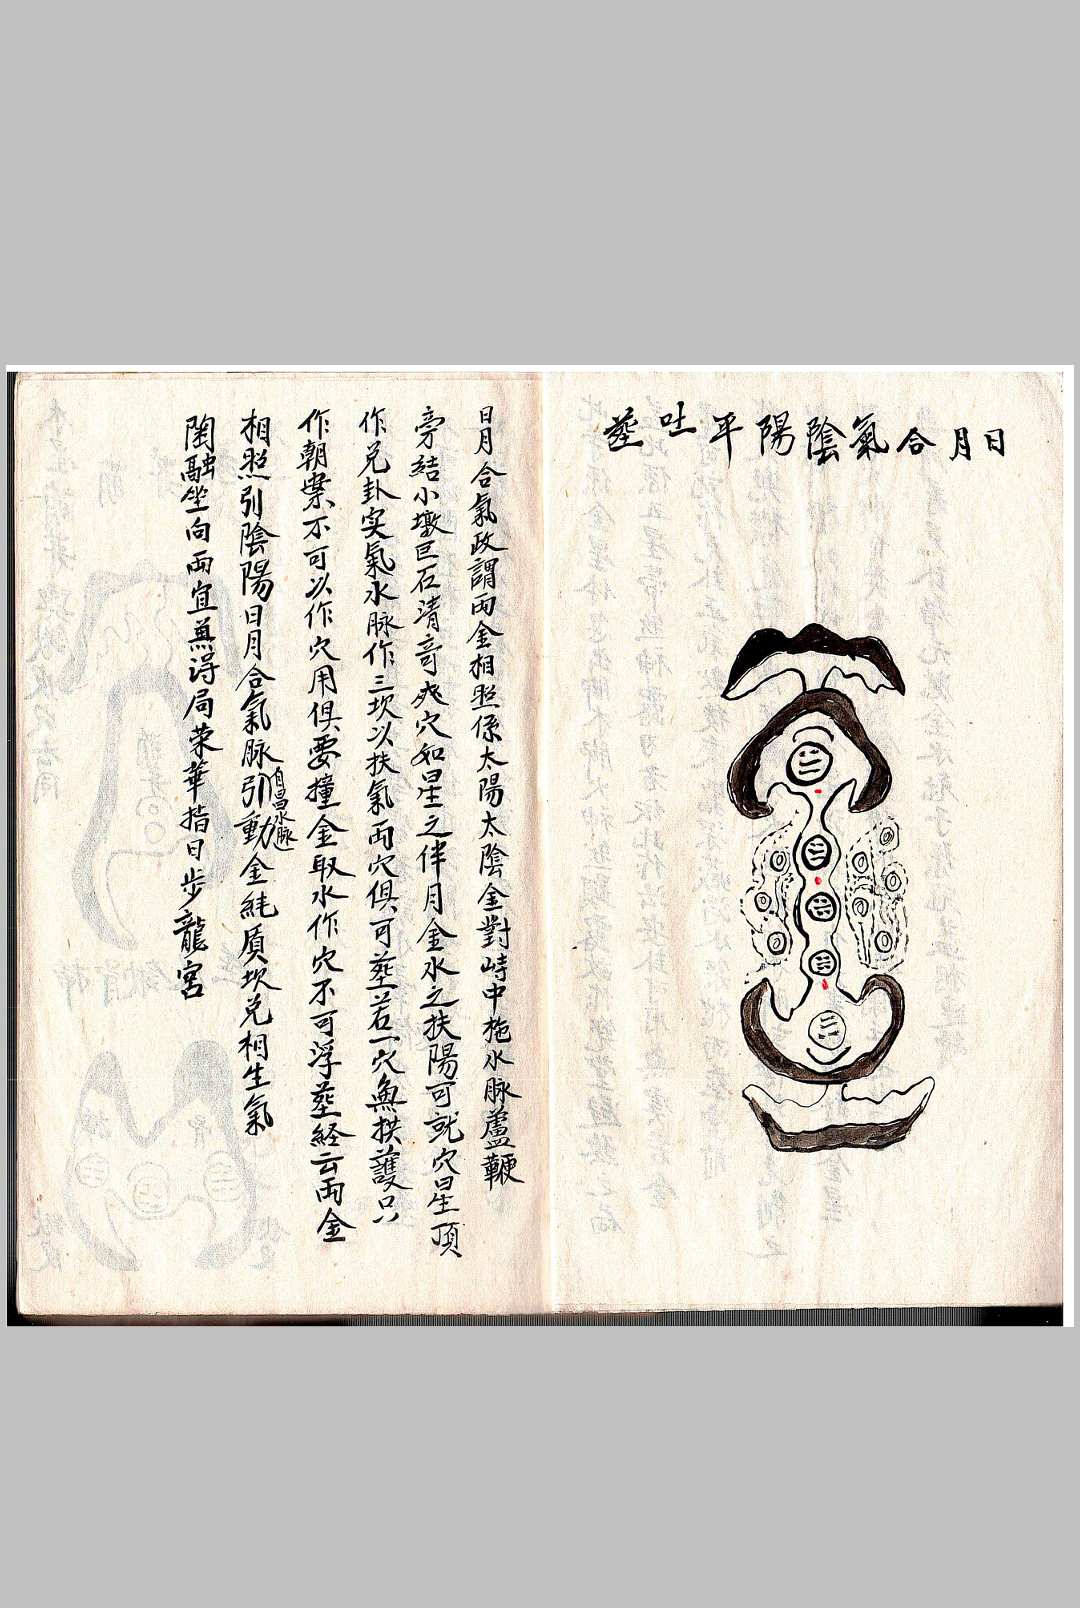 日月合氣陰陽平吐塟
日月合氣政謂兩金相照係太陽太陰金對峙中拖水脉蘆鞭
旁結小墩巨石清奇夾穴如星之伴月金水之扶陽可就穴星頂
作兌卦实氣水脉作三坎以扶氣兩穴俱可塟若一穴無拱護只
作朝案不可以作穴用俱要撞金取水作穴不可浮塟経云兩金
相照引陰陽日月合氣脉引動金純質坎兌相生氣
自昌水脉
陶融坐向兩宜兼得局荣華指日步龍宮